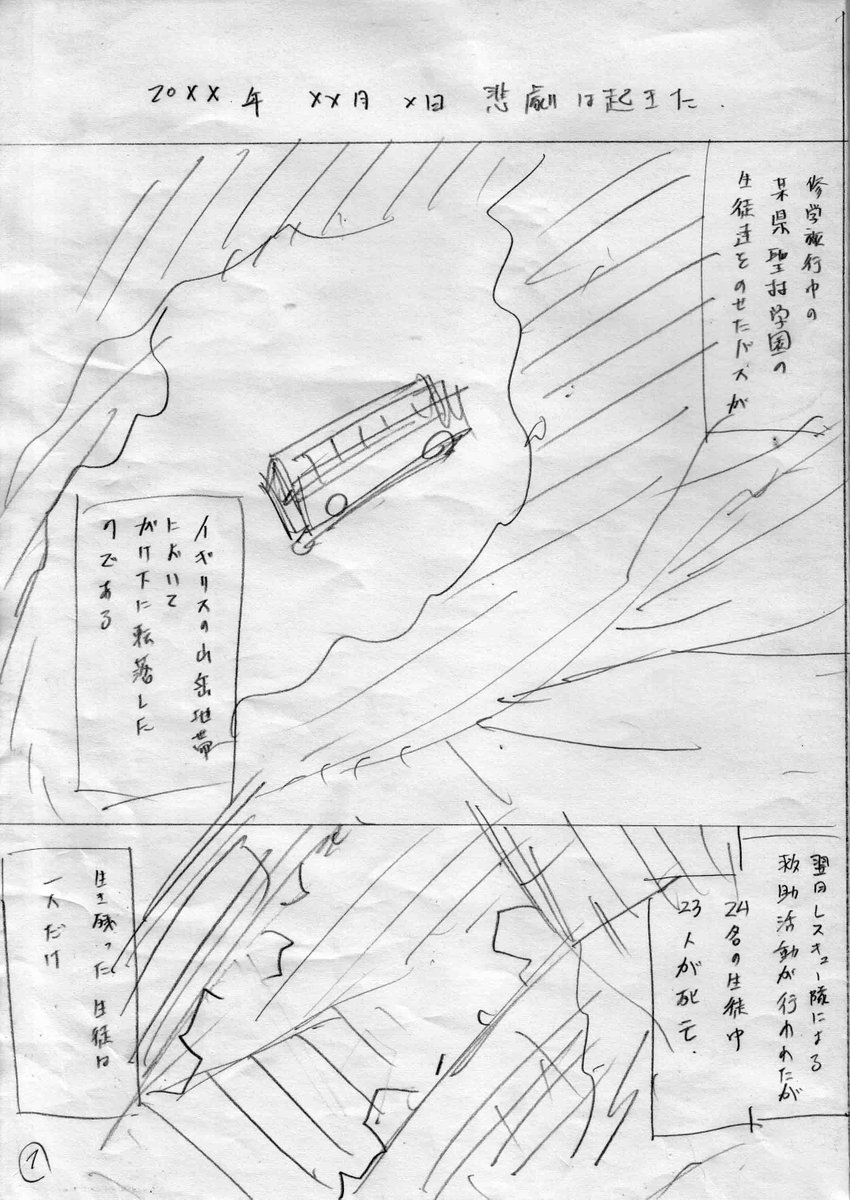 20XX年 XX月 X日 悲劇は起きた.
修学旅行中の
某県聖村学園の
生徒達をのせたバスが
イギリスの山岳地帯
において
がけ下に転落した
のである
翌日レスキュー隊による
救助活動が行われたが
24名の生徒中
23人が死亡.
生き残った生徒は
一人だけ
1